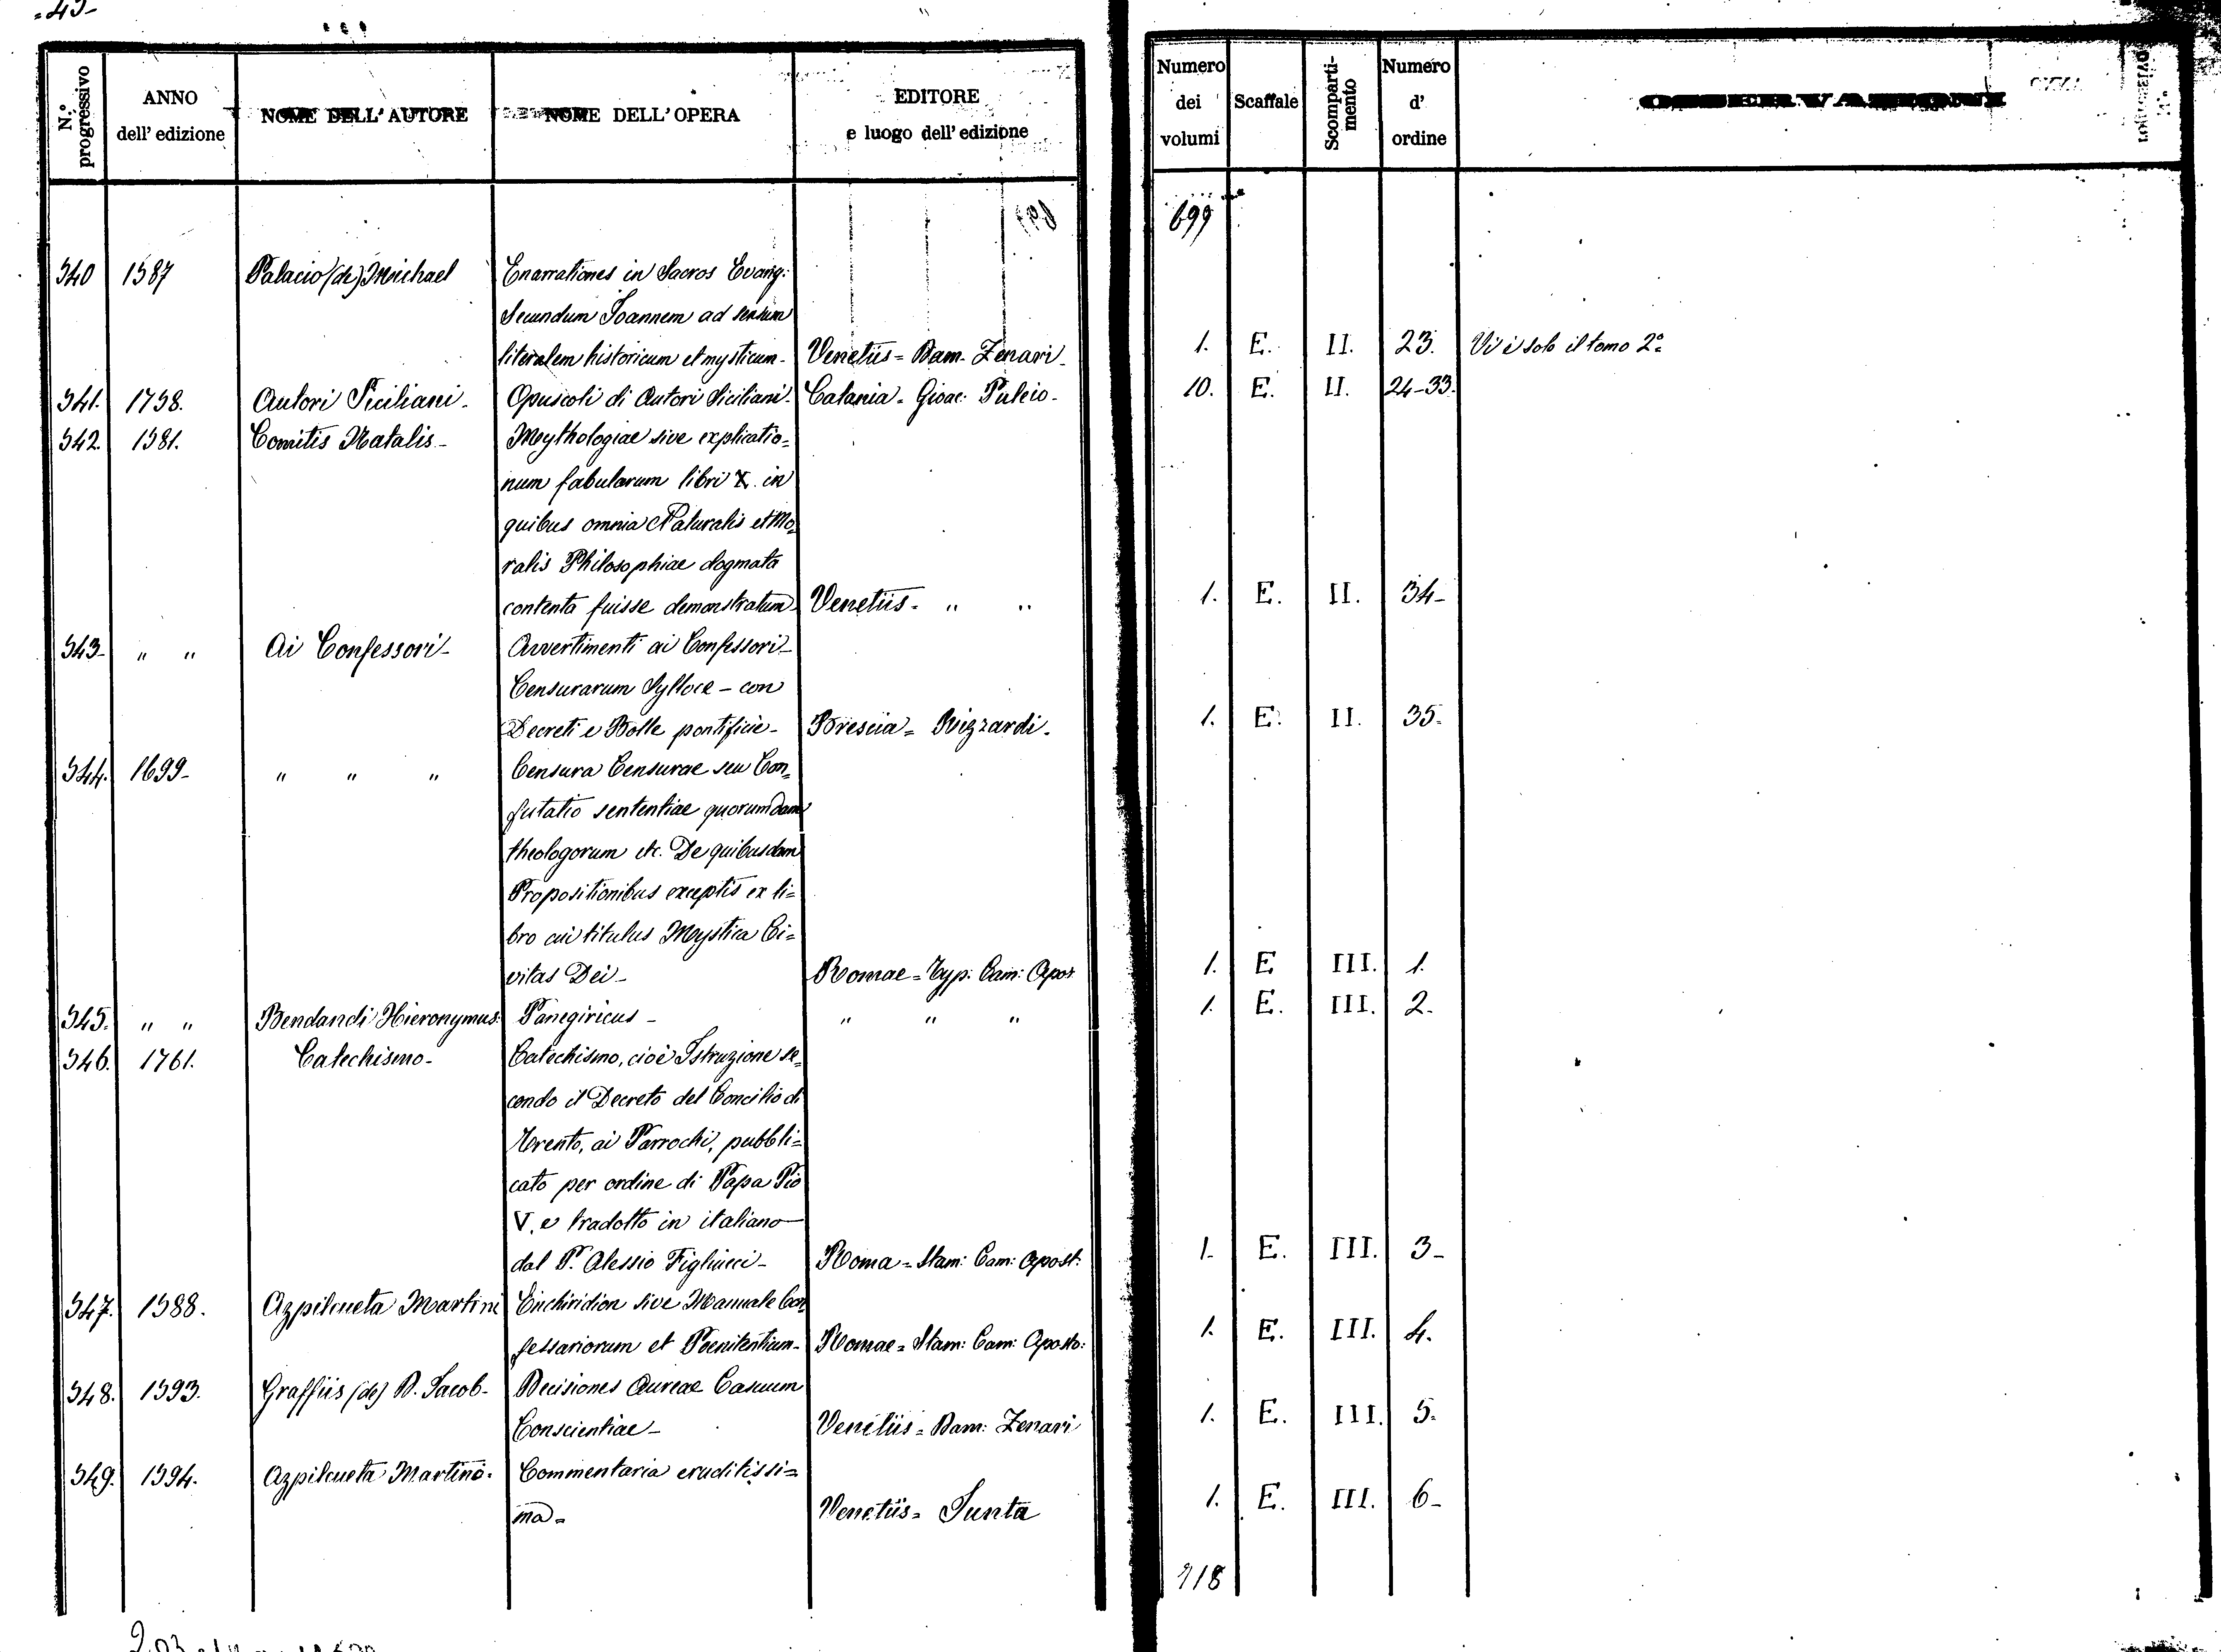 N.° progressivo | ANNO dell'edizione | NOME DELL'AUTORE | NOME DELL'OPERA | EDITORE e luogo dell'edizione | Numero dei volumi | Scaffale | Scomparti-mento | Numero d'ordine | OSSERVAZIONI
699
340 1587 Palacio (de) Michael Enarrationes in Sacros Evang:
Secundum Joannem ad sensum
literalem historicum et mysticum - Venetiis = Dam. Zenari - 1. E. II. 23. Vi è solo il tomo 2°
341. 1758. Autori Siciliani - Opuscoli di Autori Siciliani - Catania = Gioac: Pulejo - 10. E. II. 24-33.
342. 1581. Comitis Natalis - Mythologiae sive explicatio=
num fabularum libri X. in
quibus omnia Naturalis et Mo=
ralis Philosophiae dogmata
contenta fuisse demonstratum - Venetiis - " " 1. E. II. 34-
343- " " Ai Confessori - Avvertimenti ai Confessori -
Censurarum Sylloce - con
Decreti e Bolle pontificie - Brescia = Rizzardi. 1. E. II. 35-
344. 1699- " " " Censura Censurae seu Con=
futatio sententiae quorumdam
theologorum etc. De quibusdam
Propositionibus exceptis ex li=
bro cui titulus Mystica Ci=
vitas Dei - Romae = Typ: Cam: Apos 1. E III. 1.
345. " " Bendandi Hieronymus: Panegiricus - " " " 1. E. III. 2.
346. 1761. Catechismo - Catechismo, cioè Istruzione se=
condo il Decreto del Concilio di
Trento, ai Parrochi, pubbli=
cato per ordine di Papa Pio
V. e tradotto in italiano -
dal P. Alessio Figliucci - Roma = Stam: Cam: Apost: 1- E. III. 3-
347. 1588. Azpilcueta Martini Enchiridion sive Manuale Con
fessariorum et Poenitentium - Romae = Stam: Cam: Aposto: 1. E. III. 4.
348. 1593. Graffiis (de) D. Jacob - Decisiones Aureae Casuum
Conscientiae - Venetiis = Dam: Zenari 1. E. III. 5.
349. 1594. Azpilcueta Martino - Commentaria eruditissi=
ma = Venetiis = Junta 1. E. III. 6-
718